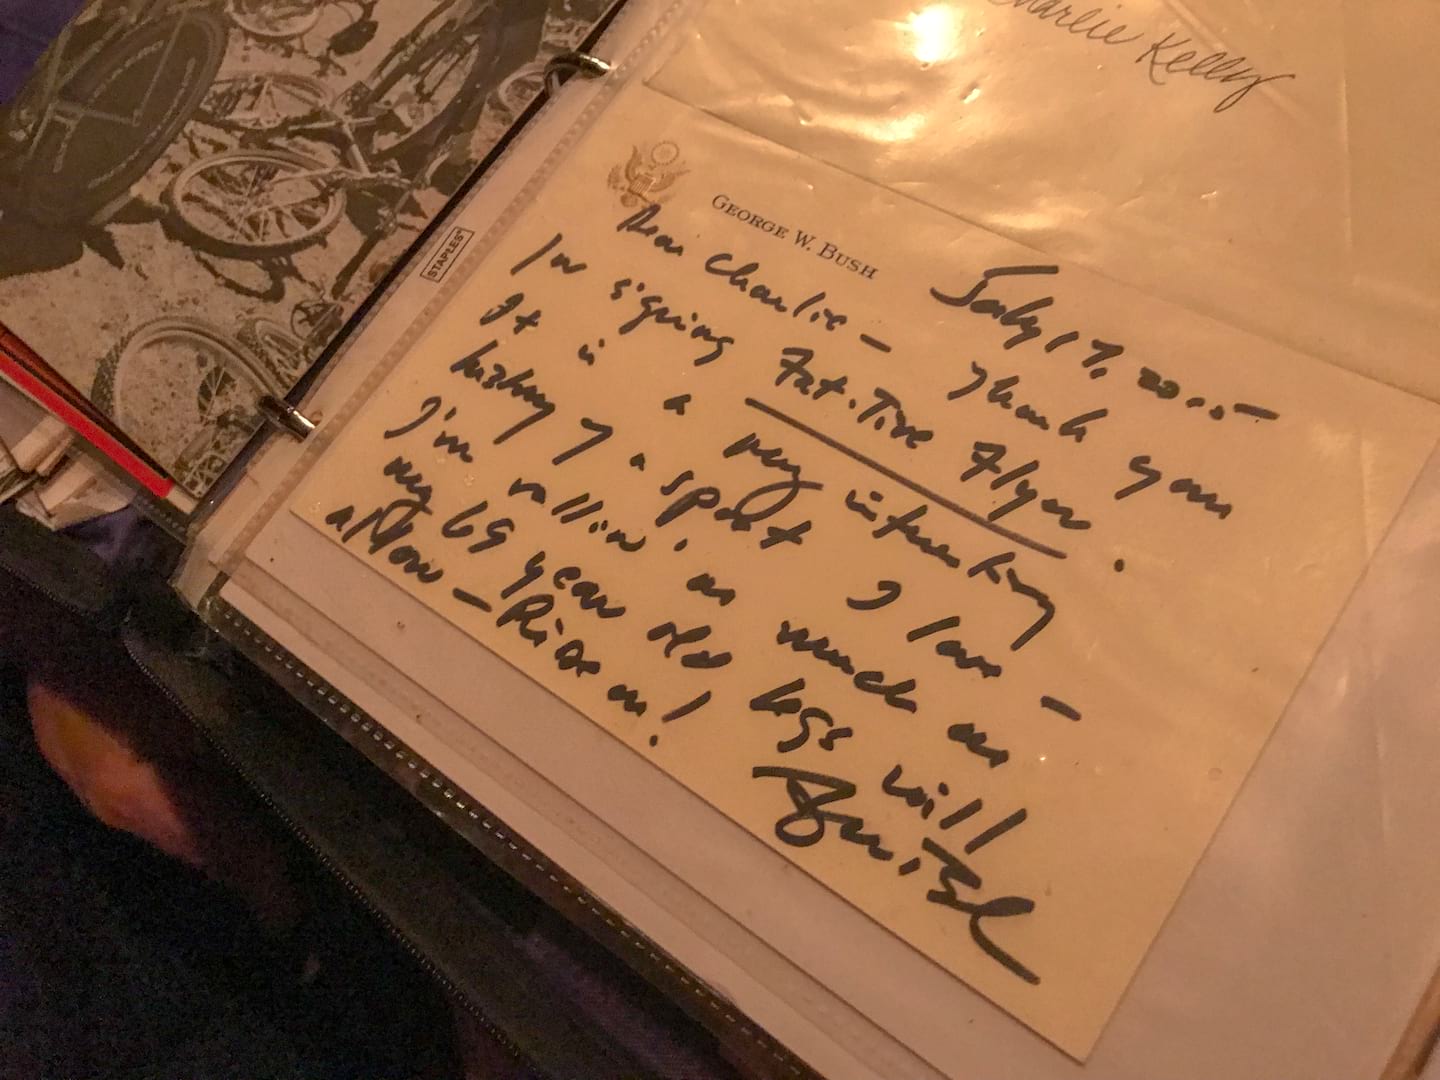 Charlie Kelly
STAPLES®
GEORGE W. BUSH
July 17, 2015
Dear Charlie — Thank you
for signing Fat-Tire Flyer.
It is a very interesting
history of a sport I love —
I'm rollin' as much as
my 69 year old legs will
allow — Ride on!